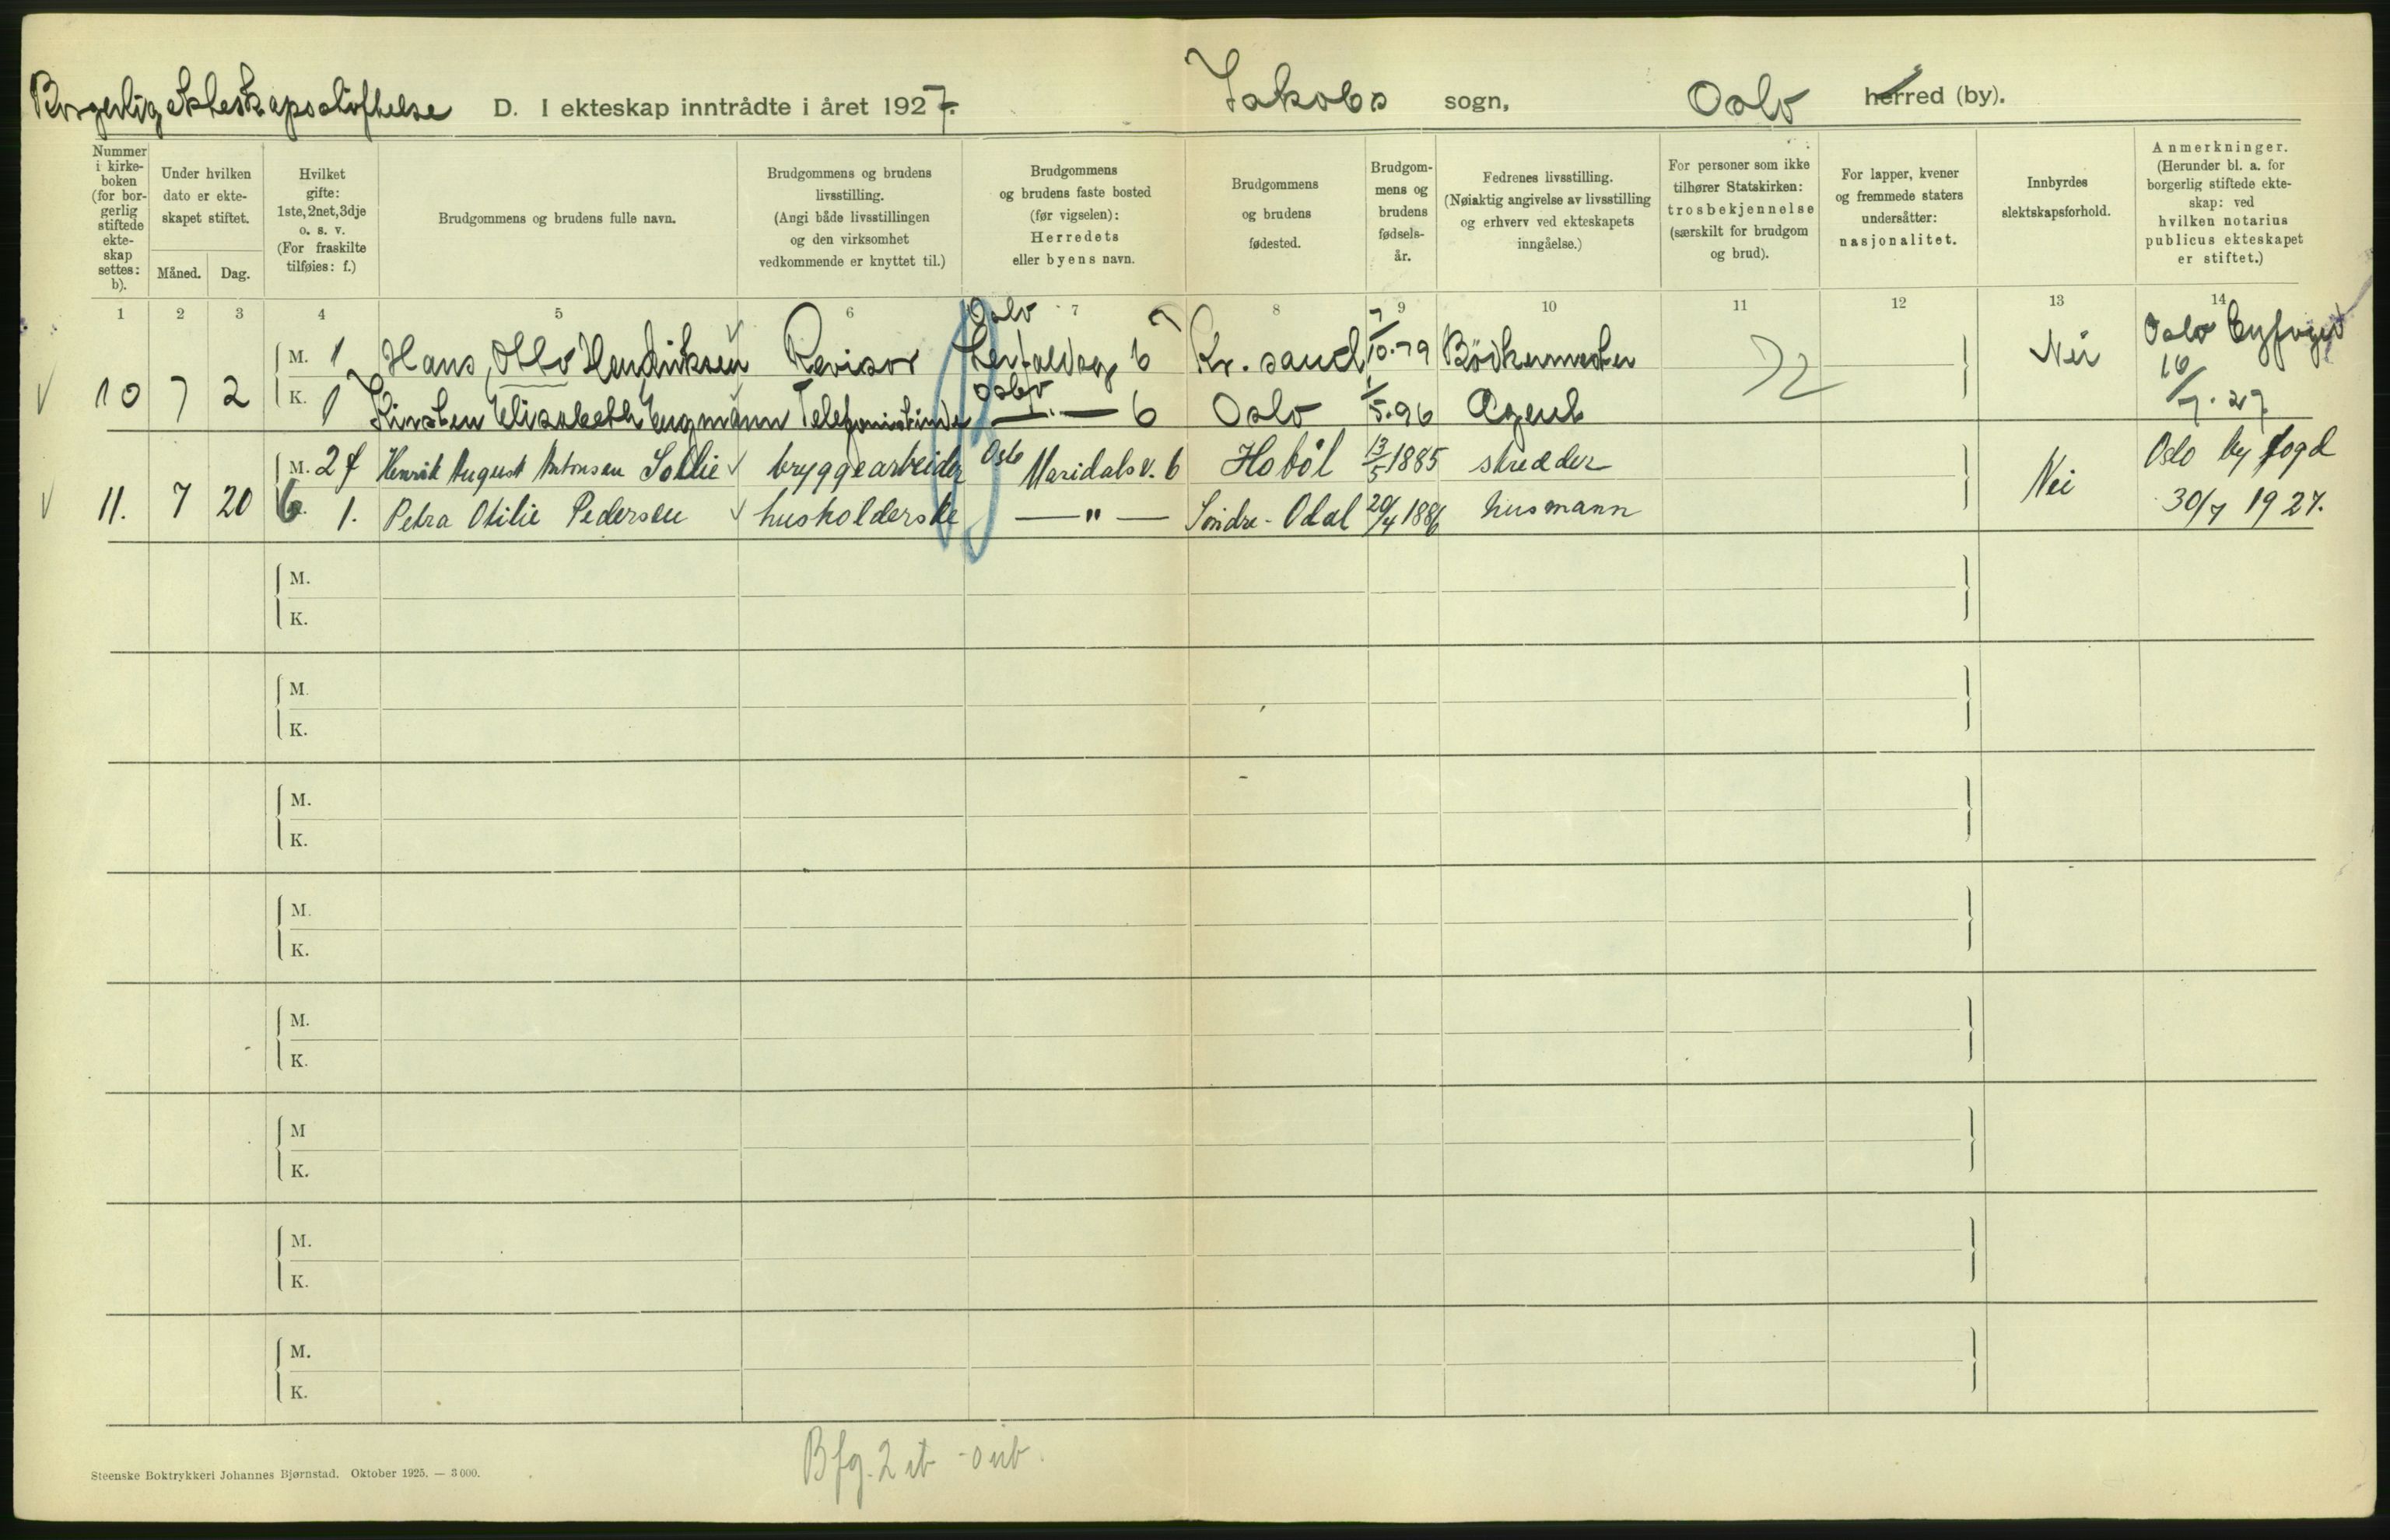 Borgerlig ekteskapsstiftelse D. I ekteskap inntrådte i året 1927. Jakobs sogn, Oslo herred (by).
Nummer i kirkeboken (for borgerlig stiftede ekteskap settes: b).
Under hvilken dato er ekteskapet stiftet.
Måned. Dag.
Hvilket gifte: 1ste, 2net, 3dje o. s. v. (For fraskilte tilføies: f.)
Brudgommens og brudens fulle navn.
Brudgommens og brudens livsstilling. (Angi både livsstillingen og den virksomhet vedkommende er knyttet til.)
Brudgommens og brudens faste bosted (før vigselen): Herredets eller byens navn.
Brudgommens og brudens fødested.
Brudgommens og brudens fødselsår.
Fedrenes livsstilling. (Nøiaktig angivelse av livsstilling og erhverv ved ekteskapets inngåelse.)
For personer som ikke tilhører Statskirken: trosbekjennelse (særskilt for brudgom og brud).
For lapper, kvener og fremmede staters undersåtter: nasjonalitet.
Innbyrdes slektskapsforhold.
Anmerkninger. (Herunder bl. a. for borgerlig stiftede ekteskap: ved hvilken notarius publicus ekteskapet er stiftet.)
1 2 3 4 5 6 7 8 9 10 11 12 13 14
10 7 2 M. 1 Hans Otto Hendriksen Revisor Oslo 6 Kr. sand 7/10.79 Bödkermester Nei Oslo Byfoged
K. 1 Kirsten Elisabeth Engmann Telefonistinde Oslo — " — 6 Oslo 1/5.96 Agent 16/7.27
11. 7 20 M. 2 f Henrik August Antonsen Sollie bryggearbeider Oslo Maridalsv. 6 Hoböl 13/5 1885 skredder Nei Oslo by fogd
6 1. Petra Otilie Pedersen husholderske — " — Söndre-Odal 20/4 1886 husmann 30/7 1927.
M.
K.
M.
K.
M.
K.
M.
K.
M.
K.
M
K.
M.
K.
M.
K.
Steenske Boktrykkeri Johannes Bjørnstad. Oktober 1925. — 3 000.
Bfg. 2